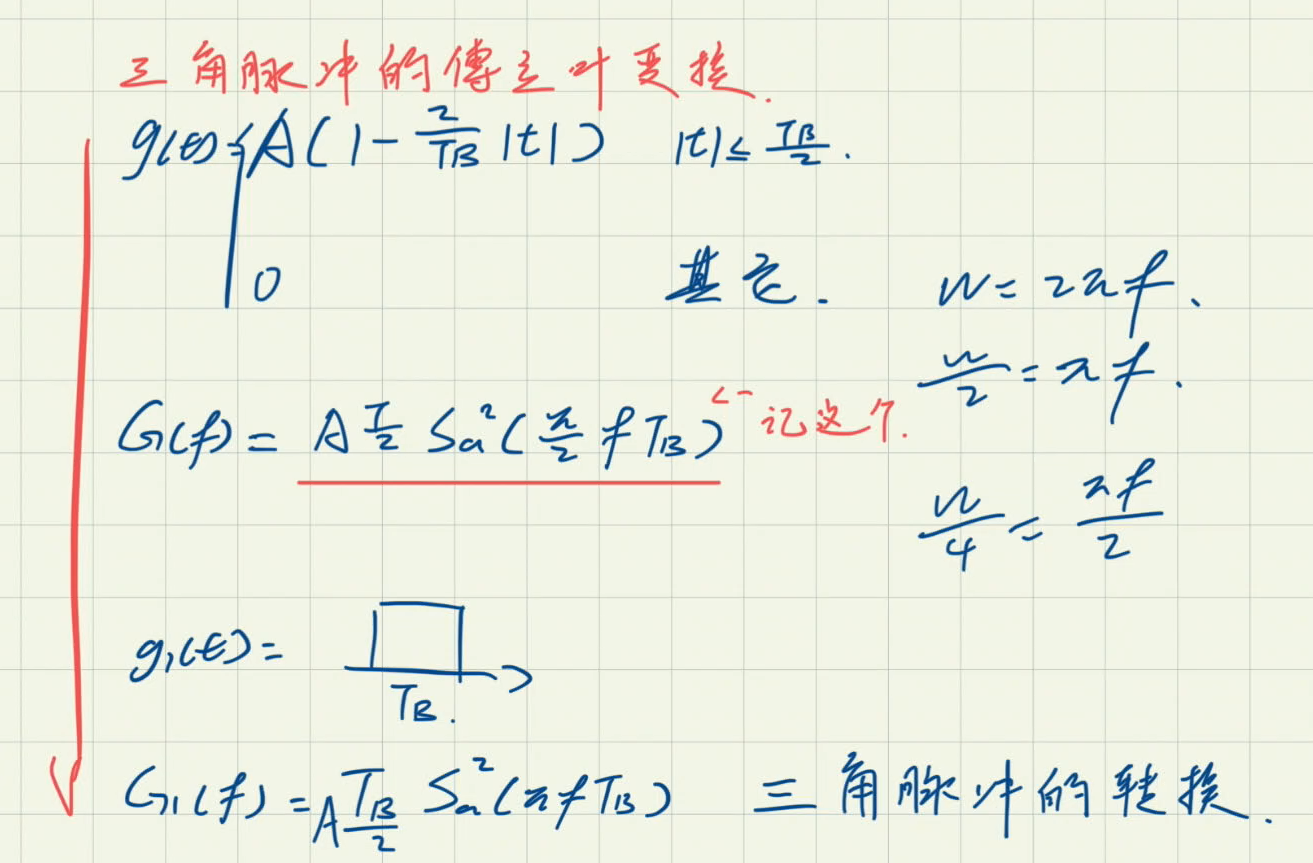 三角脉冲的傅立叶变换.
g(t)={A(1-\frac{2}{T_B}|t|) |t|≤\frac{T_B}{2}.
0 其它. w=2πf.
\frac{w}{2}=πf.
G(f)=A\frac{T}{2}Sa²(\frac{π}{2}fT_B) ←记这个.
\frac{w}{4}=\frac{πf}{2}
g₁(t)=
T_B.
G₁(f)=A\frac{T_B}{2}Sa²(πfT_B) 三角脉冲的转换.